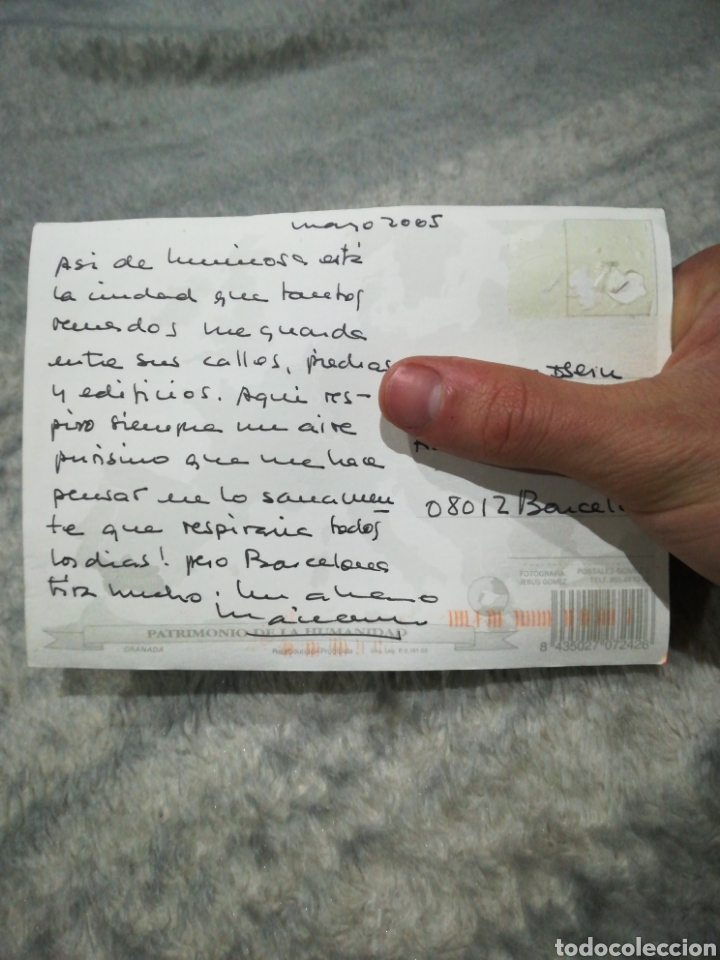 mayo 2005
Asi de luminosa está
la ciudad que tantos
recuerdos me guarda
entre sus calles, piedras
y edificios. Aqui res-
piro siempre un aire
purisimo que me hace
pensar en lo sanamen
te que respiraria todos
los dias! pero Barcelona
tira mucho. Un abrazo
08012 Barcel
FOTOGRAFIA
JESUS GOMEZ
POSTALES
PATRIMONIO DE LA HUMANIDAD
GRANADA
8 435027 072426
todocoleccion